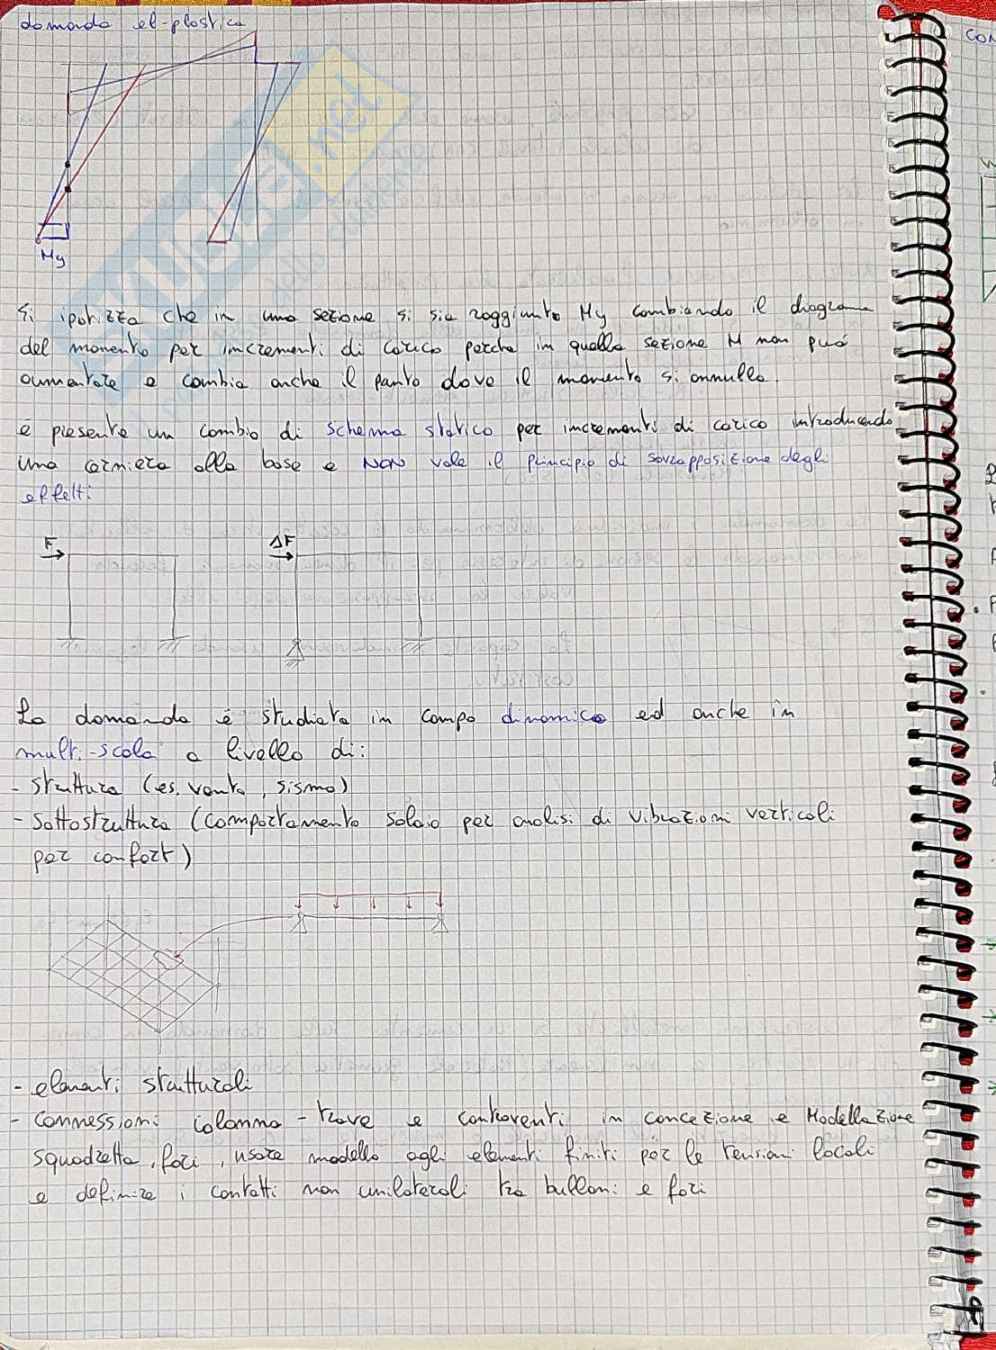 domanda el-plastica
My
Si ipotizza che in una sezione si sia raggiunto My cambiando il diagramma
del momento per incrementi di carico perche in quella sezione M non può
aumentare e cambia anche il punto dove il momento si annulla.
è presente un cambio di schema statico per incrementi di carico introducendo
una cerniera alla base e NON vale il principio di sovrapposizione degli
effetti
F
ΔF
La domanda è studiata in campo dinamico ed anche in
multi-scala a livello di:
- struttura (es. vento, sisma)
- Sottostruttura (comportamento solaio per analisi di vibrazioni verticali
per confort)
- elementi strutturali
- connessioni colonna - trave e controventi in concezione e Modellazione
squadretta, fori, usare modello agli elementi finiti per le tensioni locali
e definire i contatti non unilaterali tra bulloni e fori